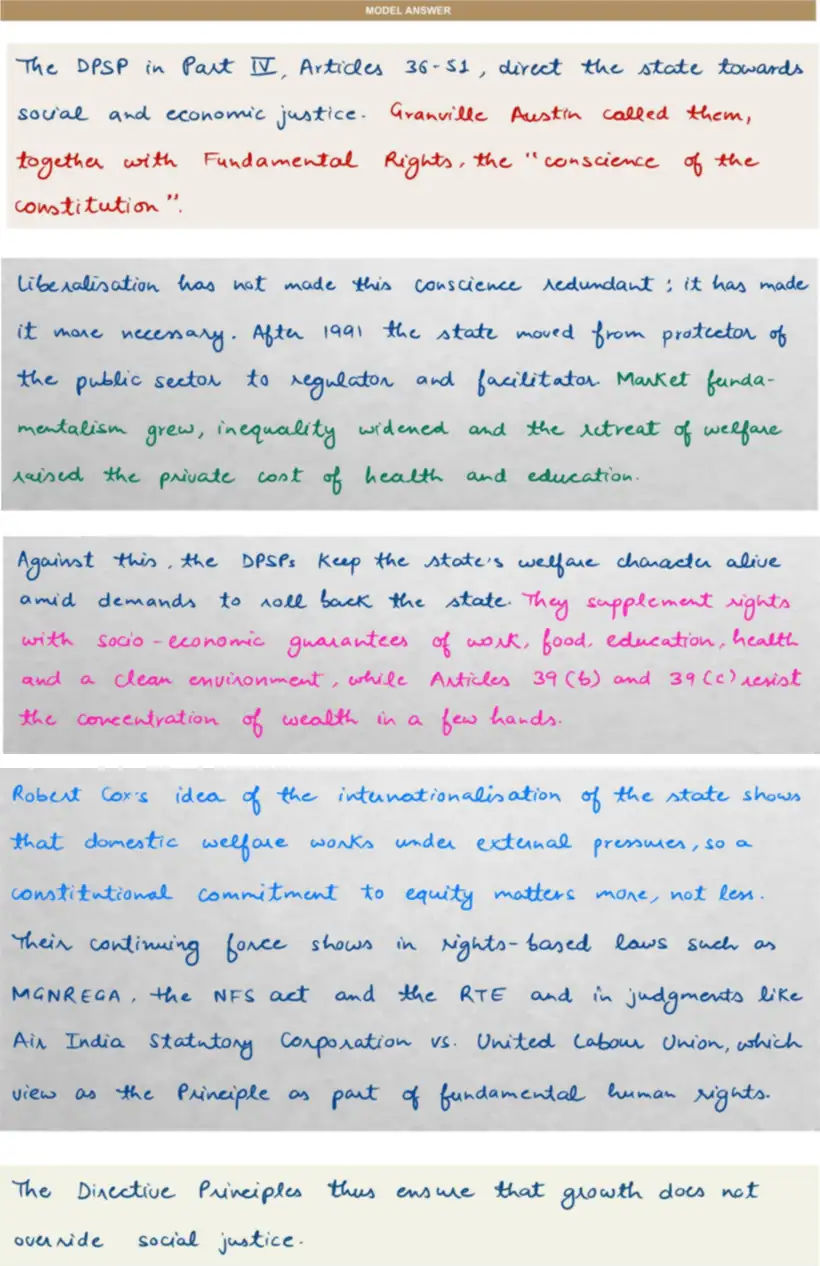 MODEL ANSWER
The DPSP in Part IV, Articles 36-51, direct the state towards
social and economic justice. Granville Austin called them,
together with Fundamental Rights, the "conscience of the
constitution".
Liberalisation has not made this conscience redundant; it has made
it more necessary. After 1991 the state moved from protector of
the public sector to regulator and facilitator. Market funda-
mentalism grew, inequality widened and the retreat of welfare
raised the private cost of health and education.
Against this, the DPSPs keep the state's welfare character alive
amid demands to roll back the state. They supplement rights
with socio-economic guarantees of work, food, education, health
and a clean environment, while Articles 39(b) and 39(c) resist
the concentration of wealth in a few hands.
Robert Cox's idea of the internationalisation of the state shows
that domestic welfare works under external pressures, so a
constitutional commitment to equity matters more, not less.
Their continuing force shows in rights-based laws such as
MGNREGA, the NFS act and the RTE and in judgments like
Air India Statutory Corporation vs. United Labour Union, which
view as the Principle as part of fundamental human rights.
The Directive Principles thus ensure that growth does not
override social justice.